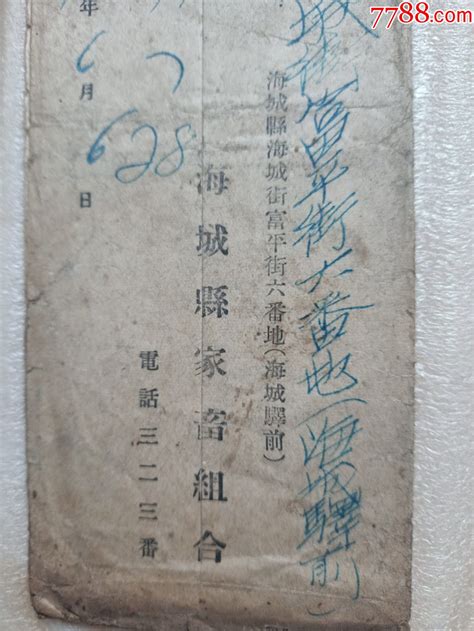 7788.com
城街富平街六番地(海城驛前)
海城縣海城街富平街六番地(海城驛前)
海城縣家畜組合
電話三二三番
年 月 日
6 7
628